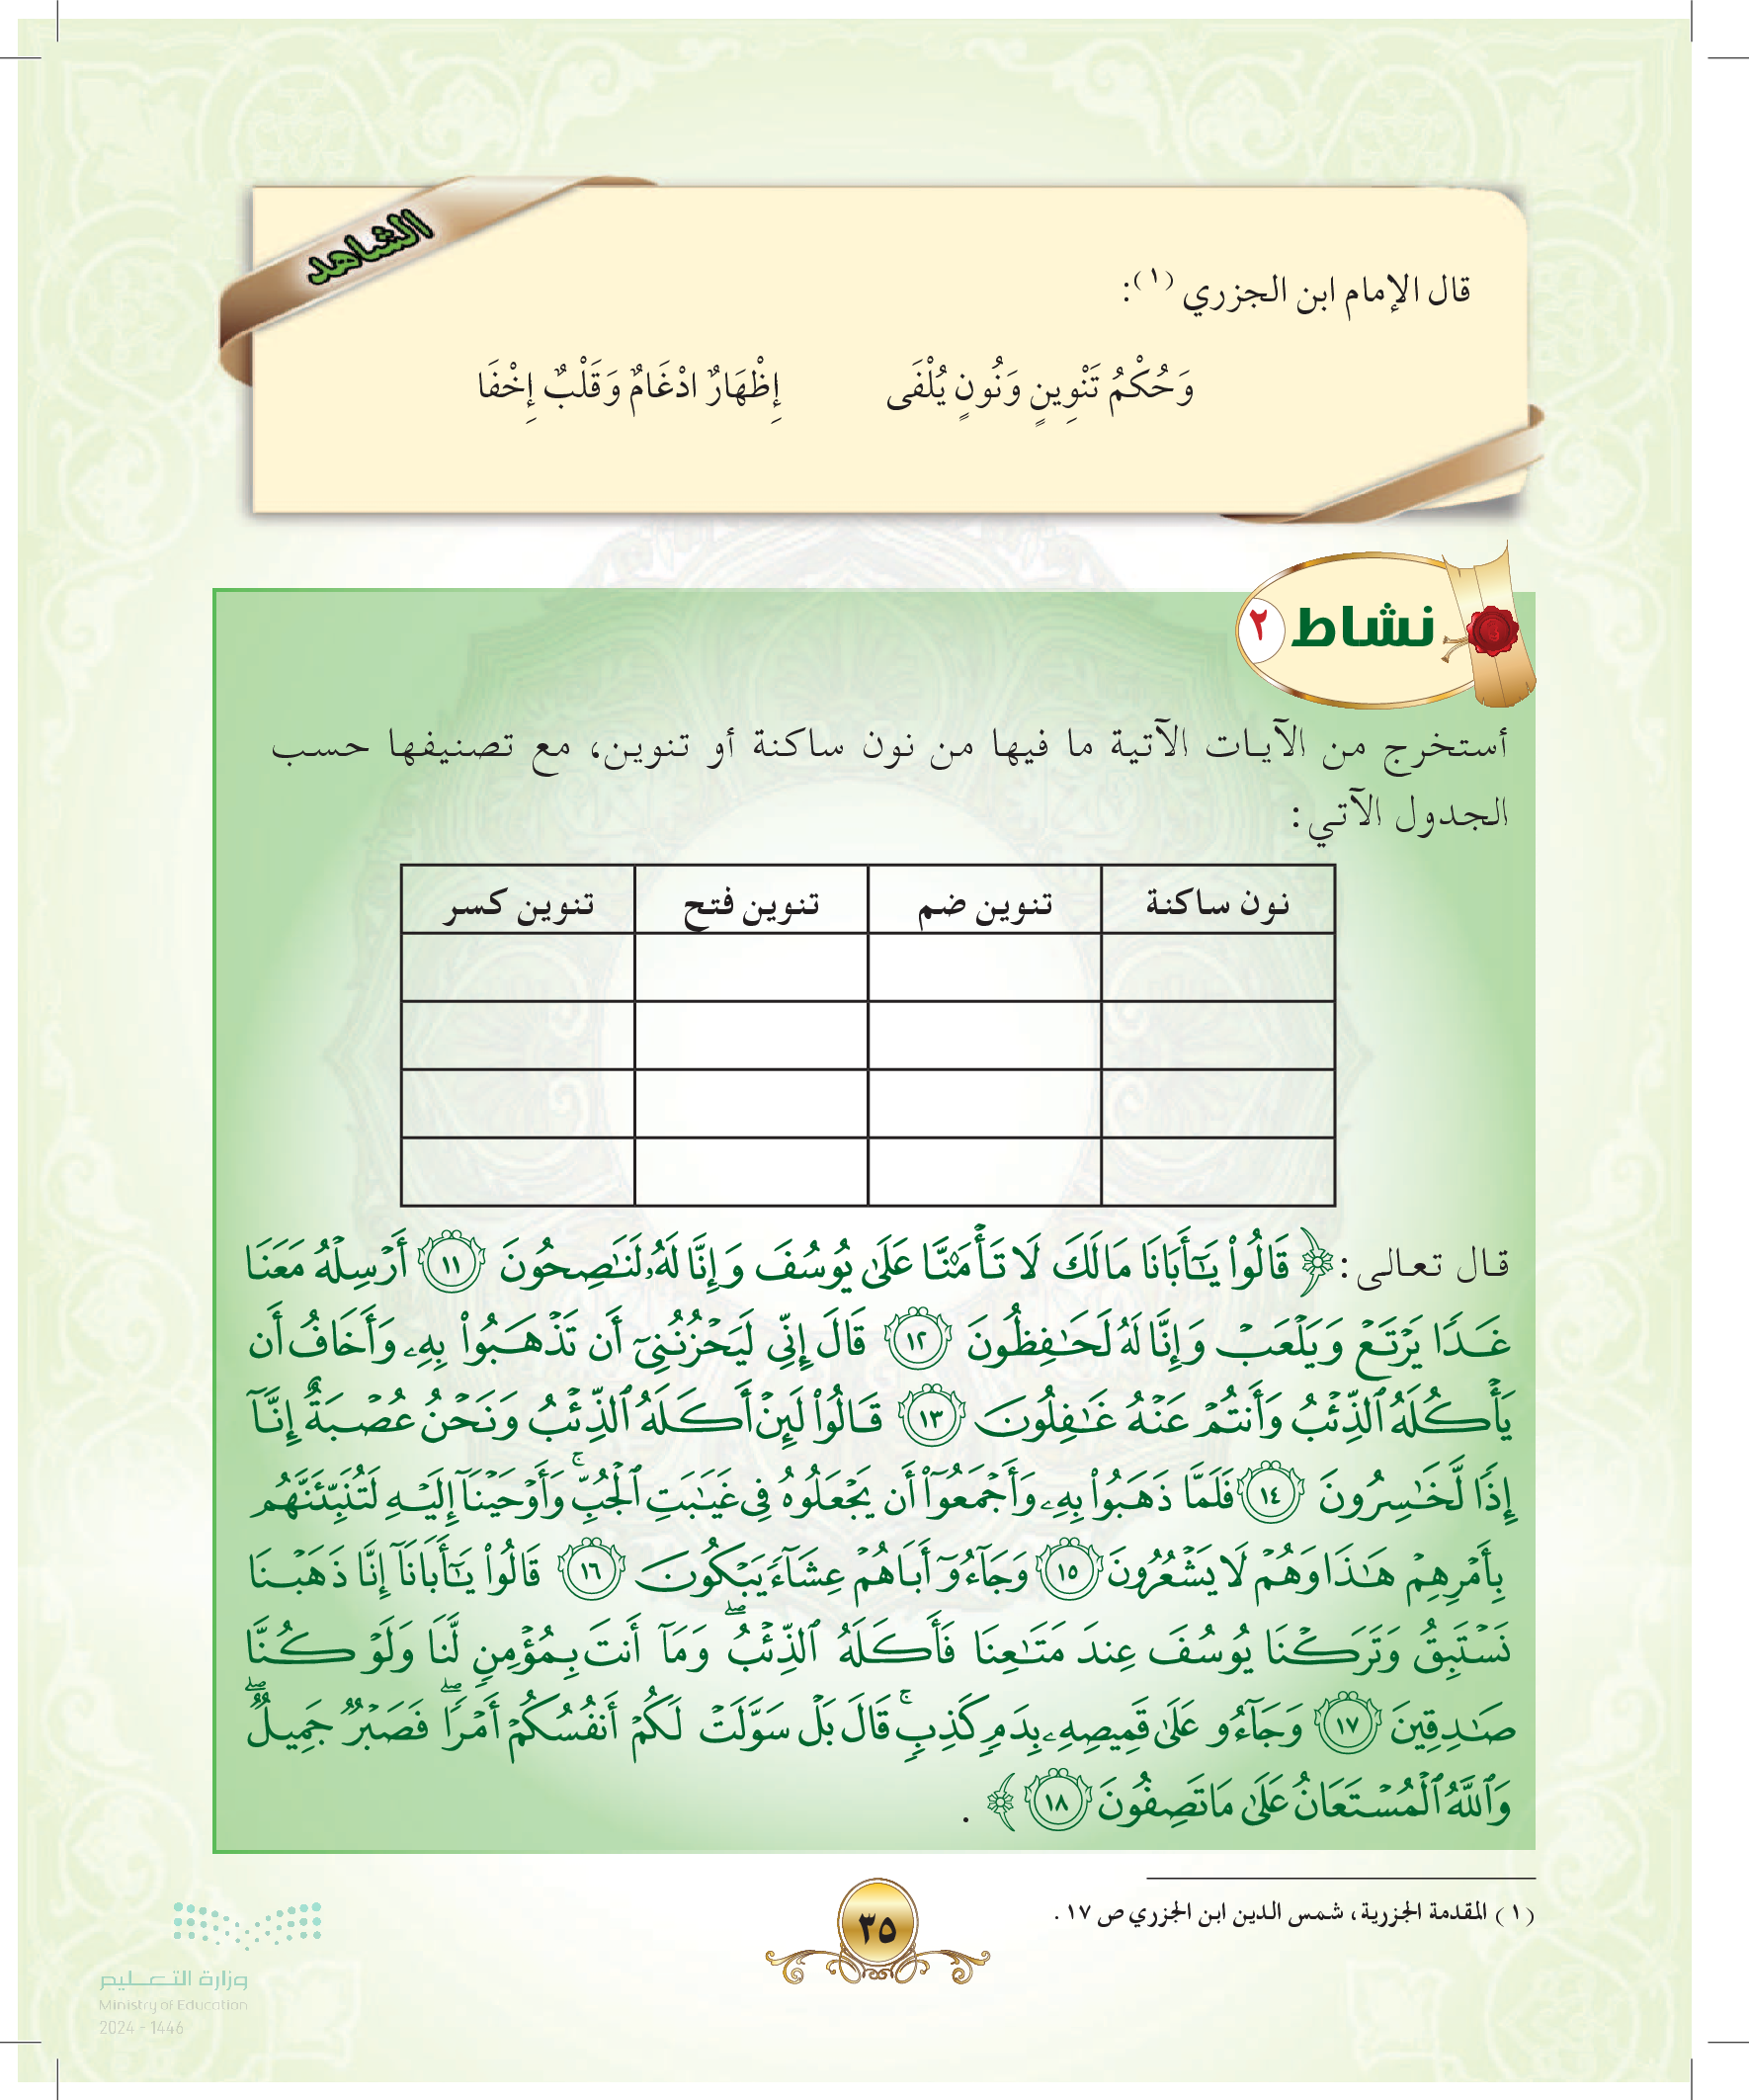 الشاهد
قال الإمام ابن الجزري (١):
وَحُكْمُ تَنْوِينٍ وَنُونٍ يُلْفَى إِظْهَارٌ ادْغَامٌ وَقَلْبٌ إِخْفَا
نشاط ٢
أستخرج من الآيـات الآتية ما فيها من نون ساكنة أو تنوين، مع تصنيفها حسب
الجدول الآتي:
نون ساكنة تنوين ضم تنوين فتح تنوين كسر
قال تعالى: ﴿ قَالُوا۟ يَـٰٓأَبَانَا مَا لَكَ لَا تَأْمَ۫نَّا عَلَىٰ يُوسُفَ وَإِنَّا لَهُۥ لَنَـٰصِحُونَ ١١ أَرْسِلْهُ مَعَنَا
غَدًا يَرْتَعْ وَيَلْعَبْ وَإِنَّا لَهُۥ لَحَـٰفِظُونَ ١٢ قَالَ إِنِّى لَيَحْزُنُنِىٓ أَن تَذْهَبُوا۟ بِهِۦ وَأَخَافُ أَن
يَأْكُلَهُ ٱلذِّئْبُ وَأَنتُمْ عَنْهُ غَـٰفِلُونَ ١٣ قَالُوا۟ لَئِنْ أَكَلَهُ ٱلذِّئْبُ وَنَحْنُ عُصْبَةٌ إِنَّآ
إِذًا لَّخَـٰسِرُونَ ١٤ فَلَمَّا ذَهَبُوا۟ بِهِۦ وَأَجْمَعُوٓا۟ أَن يَجْعَلُوهُ فِى غَيَـٰبَتِ ٱلْجُبِّ ۚ وَأَوْحَيْنَآ إِلَيْهِ لَتُنَبِّئَنَّهُم
بِأَمْرِهِمْ هَـٰذَا وَهُمْ لَا يَشْعُرُونَ ١٥ وَجَآءُوٓ أَبَاهُمْ عِشَآءً يَبْكُونَ ١٦ قَالُوا۟ يَـٰٓأَبَانَآ إِنَّا ذَهَبْنَا
نَسْتَبِقُ وَتَرَكْنَا يُوسُفَ عِندَ مَتَـٰعِنَا فَأَكَلَهُ ٱلذِّئْبُ ۖ وَمَآ أَنتَ بِمُؤْمِنٍ لَّنَا وَلَوْ كُنَّا
صَـٰدِقِينَ ١٧ وَجَآءُو عَلَىٰ قَمِيصِهِۦ بِدَمٍ كَذِبٍ ۚ قَالَ بَلْ سَوَّلَتْ لَكُمْ أَنفُسُكُمْ أَمْرًا ۖ فَصَبْرٌ جَمِيلٌ ۖ
وَٱللَّهُ ٱلْمُسْتَعَانُ عَلَىٰ مَا تَصِفُونَ ١٨ ﴾ .
(١) المقدمة الجزرية، شمس الدين ابن الجزري ص ١٧ .
٣٥
وزارة التعـليم
Ministry of Education
2024 - 1446